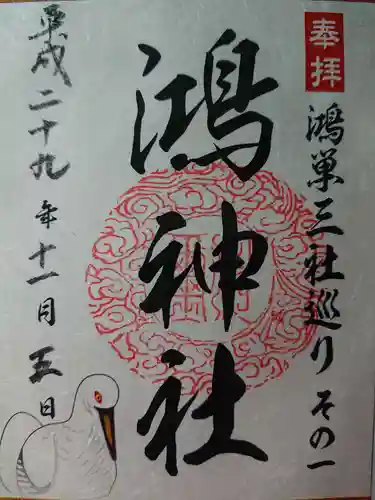 奉拝
鴻巣三社巡り その一
鴻神社
平成二十九年十一月五日